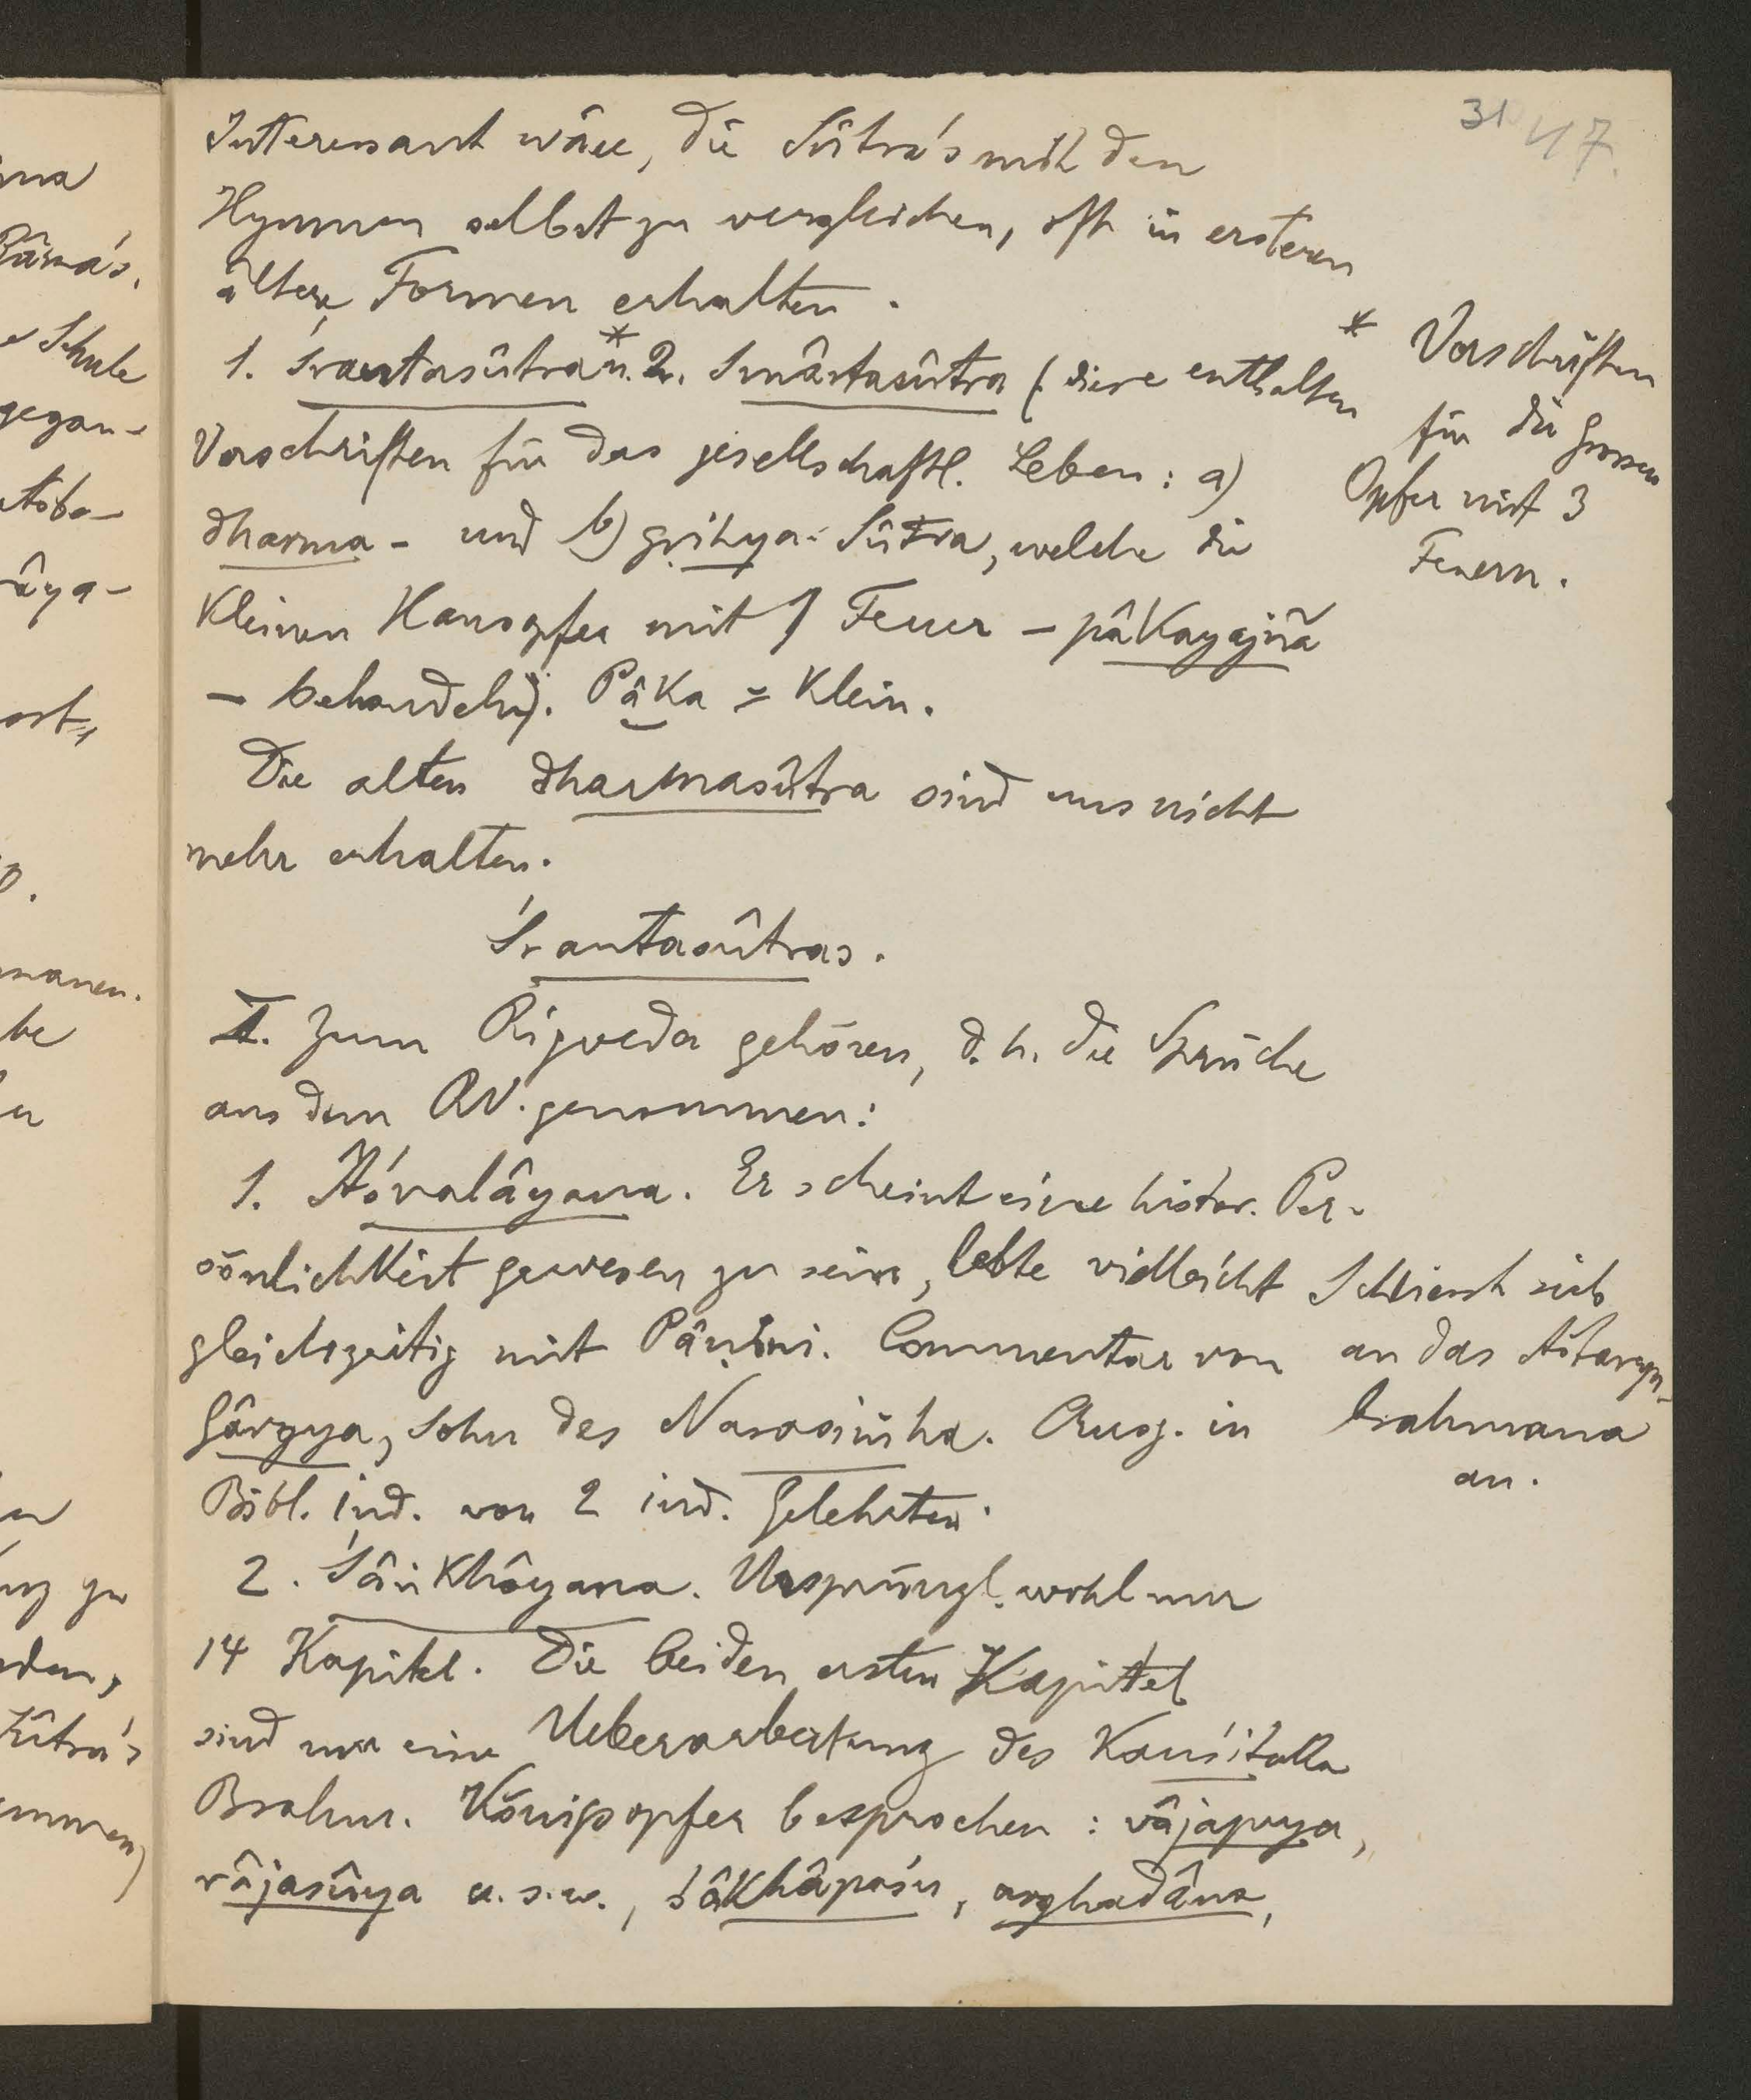 31 47.
Interessant wäre, die Sûtra's mit den
Hymnen selbst zu vergleichen, oft in ersteren
ältere Formen erhalten.
1. Śrautasûtra* u. 2. Smârtasûtra (diese enthalten
Vorschriften für das gesellschaftl. Leben: a)
dharma- und b) gṛihya-Sûtra, welche die
kleinen Hausopfer mit 1 Feuer – pâkayajña
– behandeln). Pâka = klein.
* Vorschriften
für die grossen
Opfer mit 3
Feuern.
Die alten dharmasûtra sind uns nicht
mehr erhalten.
Śrautasûtras.
I. Zum Rigveda gehören, d. h. die Sprüche
aus dem RV. genommen:
1. Âśvalâyana. Er scheint eine histor. Per-
sönlichkeit gewesen zu sein, lebte vielleicht
gleichzeitig mit Pâṇini. Commentar von
Gârgya, Sohn des Narasiṅha. Ausg. in
Bibl. ind. von 2 ind. Gelehrten.
Schliesst sich
an das Aitareya-
brahmana
an.
2. Śâṅkhâyana. Ursprüngl. wohl nur
14 Kapitel. Die beiden ersten Kapitel
sind nur eine Ueberarbeitung des Kauśitaka
Brahm. Königsopfer besprochen: vâjapeya,
râjasûya u. s. w., śâkhâpaśu, arghadâna,